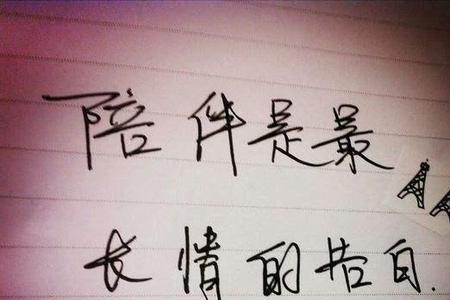 陪伴是最
长情的告白.